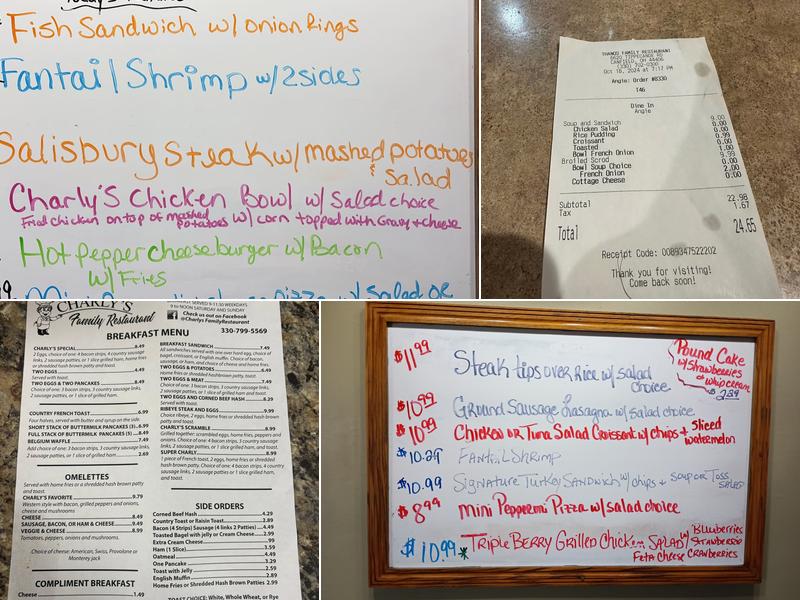 Fish Sandwich w/ onion Rings
Fantail Shrimp w/2sides
Salisbury Steak w/mashed potatoes
& Salad
Charly's Chicken Bowl w/ Salad choice
Fried chicken on top of mashed potatoes w/ corn topped with Gravy + cheese
Hot Pepper cheeseburger w/ Bacon
w/ Fries
THANOS FAMILY RESTAURANT
6620 TIPPECANOE RD
CANFIELD, OH 44406
(330) 702-0300
Oct 16, 2024 at 7:17 PM
Angie: Order #8330
T46
Dine In
Angie
Soup and Sandwich 9.00
Chicken Salad 0.00
Rice Pudding 0.99
Croissant 0.00
Toasted 1.00
Bowl French Onion 9.99
Broiled Scrod 0.00
Bowl Soup Choice 2.00
French Onion 0.00
Cottage Cheese
Subtotal 22.98
Tax 1.67
Total 24.65
Receipt Code: 0089347522202
Thank you for visiting!
Come back soon!
CHARLY'S
Family Restaurant
9 to NOON SATURDAY AND SUNDAY
Check us out on Facebook
@Charlys FamilyRestaurant
330-799-5569
BREAKFAST MENU
CHARLY'S SPECIAL 8.49
2 Eggs, choice of one: 4 bacon strips, 4 country sausage
links, 2 sausage patties, or 1 slice grilled ham, home fries
or shredded hash brown patty and toast.
TWO EGGS 4.49
Served with toast.
TWO EGGS & TWO PANCAKES 8.49
Choice of one: 3 bacon strips, 3 country sausage links,
2 sausage patties, or 1 slice of grilled ham.
COUNTRY FRENCH TOAST 6.99
Four halves, served with butter and syrup on the side.
SHORT STACK OF BUTTERMILK PANCAKES (3) 6.99
FULL STACK OF BUTTERMILK PANCAKES (4) 8.49
BELGIUM WAFFLE 7.49
Add Choice of one: 3 bacon strips, 3 country sausage links,
2 sausage patties, or 1 slice of grilled ham 2.69
OMELETTES
Served with home fries or a shredded hash brown patty
and toast.
CHARLY'S FAVORITE 9.79
Western style with bacon, grilled peppers and onions,
cheese and mushrooms
CHEESE 8.49
SAUSAGE, BACON, OR HAM & CHEESE 9.49
VEGGIE & CHEESE 8.99
Tomatoes, peppers, onions and mushrooms.
Choice of cheese: American, Swiss, Provolone or
Monterey jack
COMPLIMENT BREAKFAST
Cheese 1.49
BREAKFAST SANDWICH 7.49
All sandwiches served with one over hard egg, choice of
bagel, croissant, or English muffin. Choice of bacon,
sausage, or ham, and choice of cheese and home fries.
TWO EGGS & POTATOES 6.49
Home fries or shredded hashbrown patty, toast.
TWO EGGS & MEAT 7.49
Choice of one: 3 bacon strips, 3 country sausage links,
2 sausage patties, or 1 slice of grilled ham and toast.
TWO EGGS AND CORNED BEEF HASH 8.29
Served with toast
RIBEYE STEAK AND EGGS 9.99
Choice ribeye, 2 eggs, home fries or shredded hash brown
patty and toast.
CHARLY'S SCRAMBLE 8.99
Grilled together: scrambled eggs, home fries, peppers and
onions. Choice of one: 4 bacon strips, 3 country sausage
links, 2 sausage patties, or 1 slice grilled ham, and toast.
SUPER CHARLY 8.99
1 piece of French toast, 2 eggs, home fries or shredded
hash brown patty. Choice of one: 4 bacon strips, 4 country
sausage links, 2 sausage patties, or 1 slice of grilled ham.
SIDE ORDERS
Corned Beef Hash 4.29
Country Toast or Raisin Toast 2.89
Bacon (4 Strips) Sausage (4 links 2 Patties) 4.49
Toasted Bagel with jelly or Cream Cheese 2.99
Extra Cream Cheese .99
Ham (1 Slice) 3.59
Oatmeal 4.49
One Pancake 3.29
Toast with Jelly 2.59
English Muffin 2.89
Home Fries or Shredded Hash Brown Patties 2.99
TOAST CHOICE: White, Whole Wheat, or Rye
$11.99 Steak tips over Rice w/ salad
choice
Pound Cake
w/ Strawberries
+ whip cream
2.29
$10.99 Ground Sausage Lasagna w/ salad choice
$10.99 Chicken or Tuna Salad Croissant w/ chips + Sliced
watermelon
$10.29 Fantail Shrimp
$10.99 Signature Turkey Sandwich w/ chips + soup or Toss
Salad
$8.99 Mini Pepperoni Pizza w/ salad choice
$10.99 * Triple Berry Grilled Chicken Salad w/ Blueberries
Strawberries
Feta Cheese Cranberries